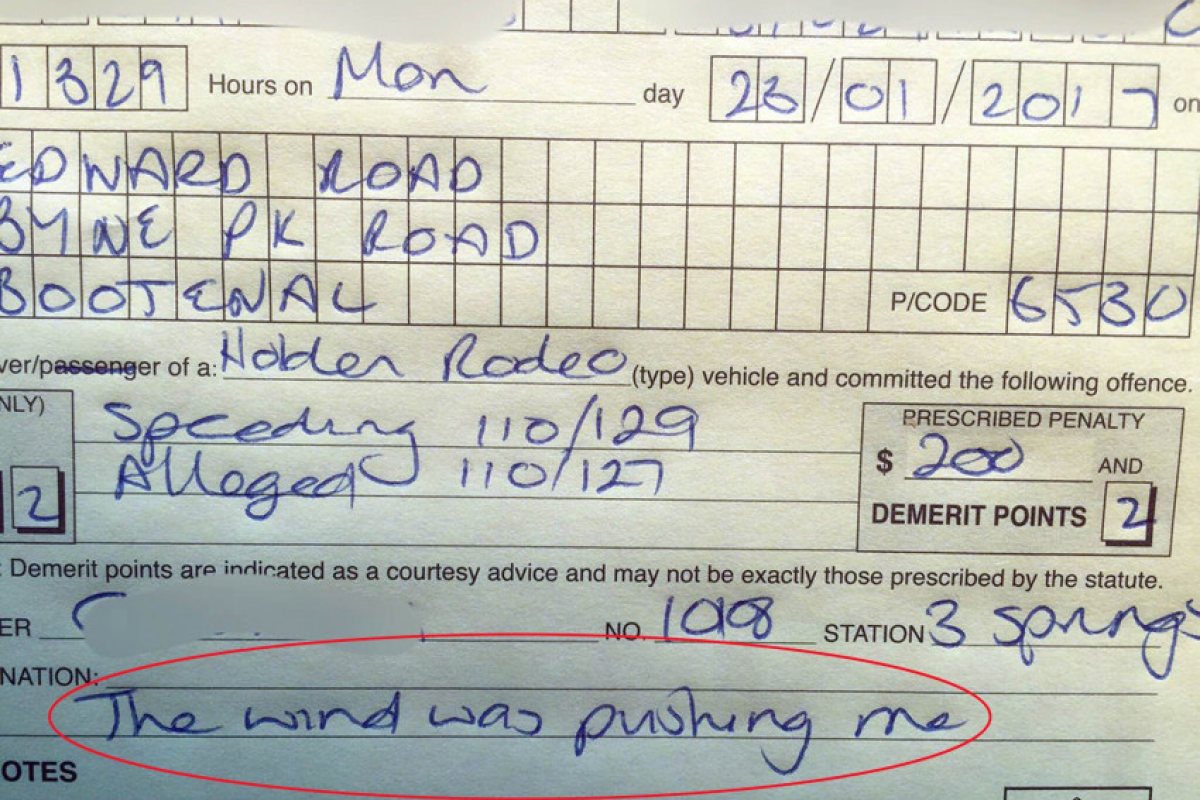 1329 Hours on Mon day 23/01/2017 on
EDWARD ROAD
BYNE PK ROAD
BOOTENAL P/CODE 6530
ver/passenger of a: Holden Rodeo (type) vehicle and committed the following offence.
NLY) Speeding 110/129 PRESCRIBED PENALTY
Alleged 110/127 $ 200 AND
2 DEMERIT POINTS 2
: Demerit points are indicated as a courtesy advice and may not be exactly those prescribed by the statute.
ER NO. 1098 STATION 3 Springs
NATION:
The wind was pushing me
OTES